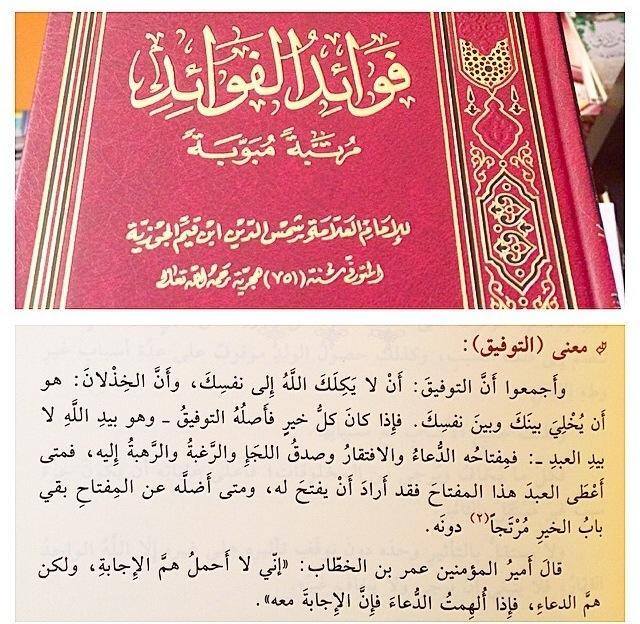 فَوَائِدُ الفَوَائِدِ
مُرتَّبَةً مُبَوَّبَةً
للإمام العلامة شمس الدين ابن قيم الجوزية
المتوفى سنة (٧٥١) هجرية رحمه الله تعالى
معنى (التوفيق):
وأجمعوا أنَّ التوفيقَ: أنْ لا يَكِلَكَ اللَّهُ إلى نفسِكَ، وأنَّ الخِذْلانَ: هو
أن يُخْلِيَ بينَكَ وبينَ نفسِكَ. فإذا كانَ كلُّ خيرٍ فأصلُهُ التوفيقُ ـ وهو بيدِ اللَّهِ لا
بيدِ العبدِ ـ: فمِفتاحُه الدُّعاءُ والافتقارُ وصدقُ اللجَإِ والرَّغبةُ والرَّهبةُ إليه، فمتى
أعْطى العبدَ هذا المفتاحَ فقد أرادَ أنْ يفتحَ له، ومتى أضلَّه عن المِفتاحِ بقي
بابُ الخيرِ مُرْتَجاً(٢) دونَه.
قالَ أميرُ المؤمنين عمر بن الخطّاب: «إنّي لا أحملُ همَّ الإجابةِ، ولكن
همَّ الدعاءِ، فإذا أُلهِمتُ الدُّعاءَ فإنَّ الإجابةَ معه».